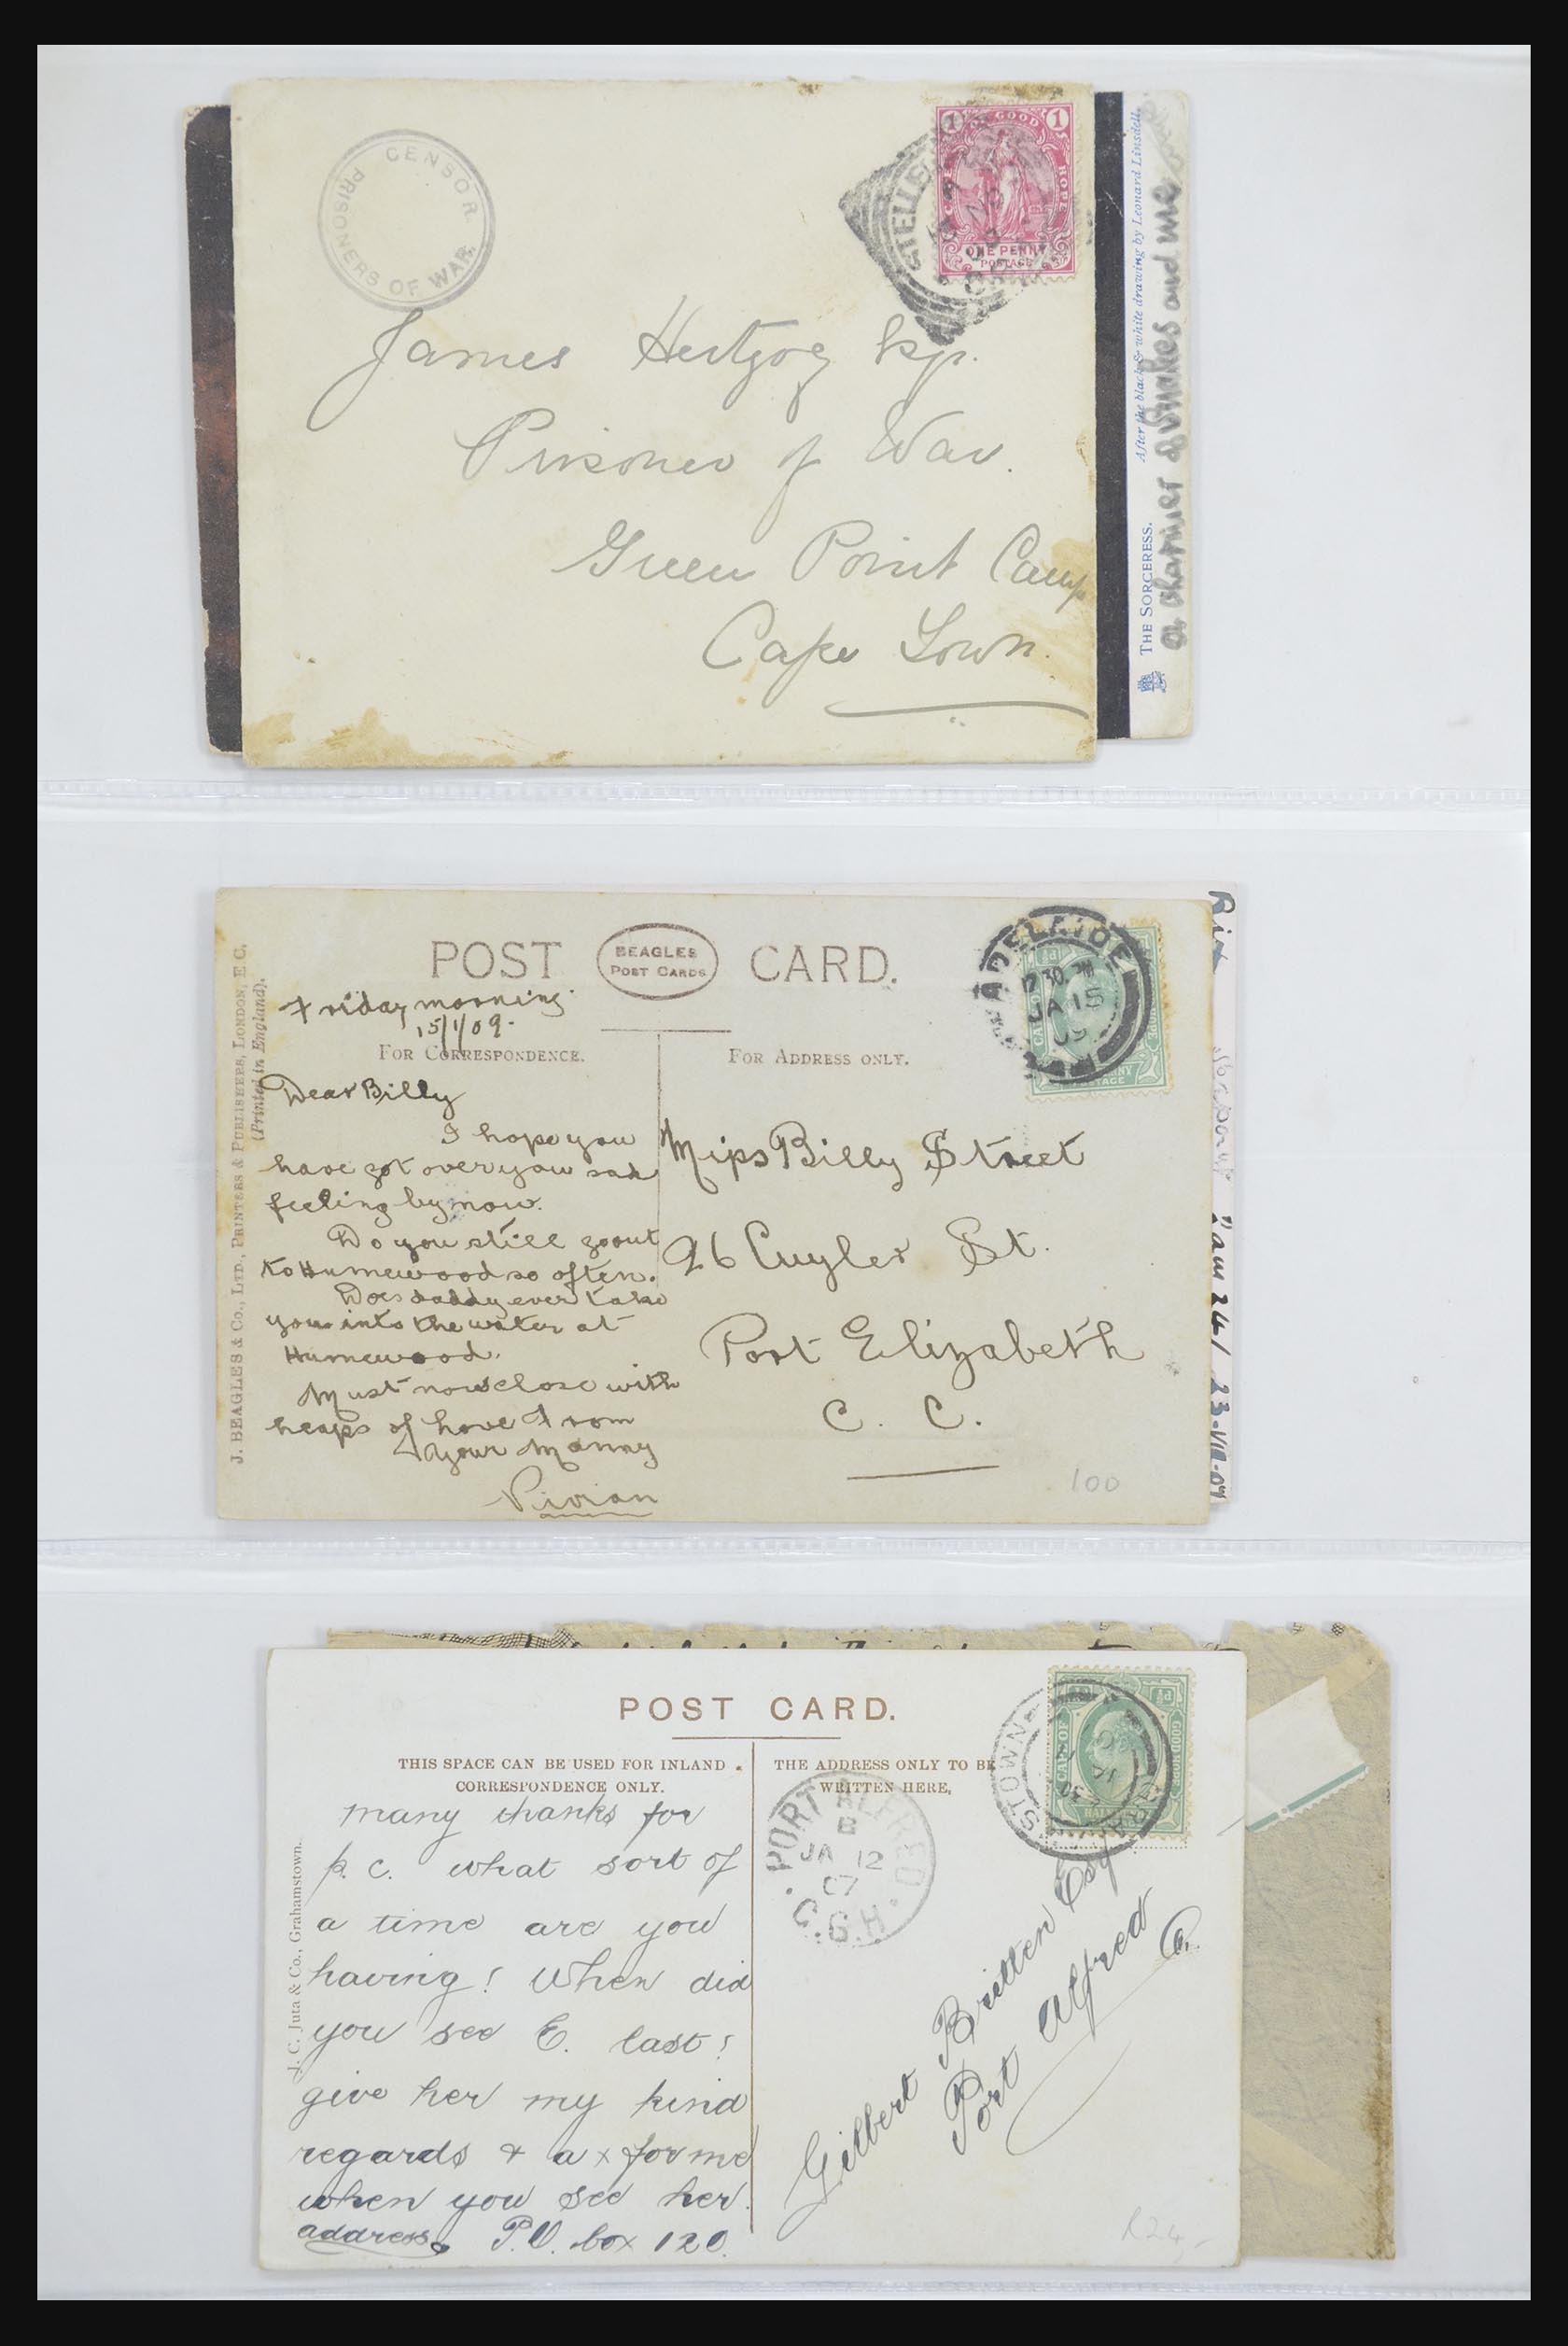 CENSOR
PRISONERS OF WAR
1 OF GOOD 1
CAPE
HOPE
ONE PENNY
POSTAGE
James Hertzog
Prisoner of War.
Green Point Camp
Cape Town.
THE SORCERESS. After the black & white drawing by Leonard Linsdell.
a charmer of Snakes and me
POST CARD.
BEAGLES
POST CARDS
ADELAIDE
JA 15
09
Friday morning.
15/1/09.
FOR CORRESPONDENCE.
FOR ADDRESS ONLY.
J. BEAGLES & Co., LTD., PRINTERS & PUBLISHERS, LONDON, E.C.
(Printed in England).
Dear Billy
I hope you
have got over your sad
feeling by now.
Do you still go out
to Humewood so often.
Does daddy ever take
you into the water at
Humewood.
Must now close with
heaps of love From
Your Manny
Vivian
Miss Billy Street
26 Cuyler St.
Port Elizabeth
C. C.
100
POST CARD.
THIS SPACE CAN BE USED FOR INLAND
CORRESPONDENCE ONLY.
THE ADDRESS ONLY TO BE
WRITTEN HERE,
J. C. Juta & Co., Grahamstown.
PORT ALFRED
B
JA 12
07
C.G.H.
CAPE OF
GOOD HOPE
½d
many thanks for
p. c. what sort of
a time are you
having? When did
you see E. last?
give her my kind
regards & a x for me
when you see her.
address P.O. box 120.
Gilbert Britten Esq
Port Alfred